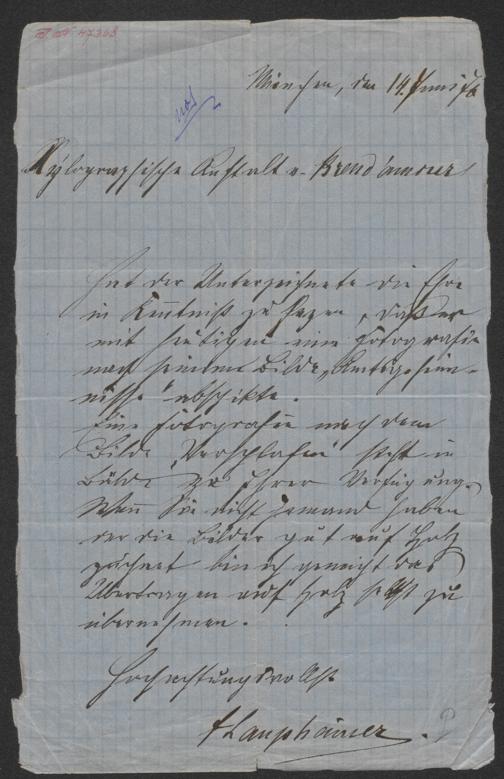 47303
München, den 14. Juni 76
Xylographische Anstalt v. Brend'amour
Hat der Unterzeichnete die Ehre
in Kentniß zu setzen, daß er
mit heutigem eine Fotografie
nach seinem Bilde „Amtsgeheim-
nisse" abschikte.
Eine Fotografie nach dem
Bilde „Verschlafen" steht in
Bälde zu Ihrer Verfügung.
Wenn Sie nicht jemand haben
der die Bilder gut auf Holz
zeichnet bin ich geneigt das
Übertragen auf Holz selbst zu
übernehmen.
Hochachtungsvollst